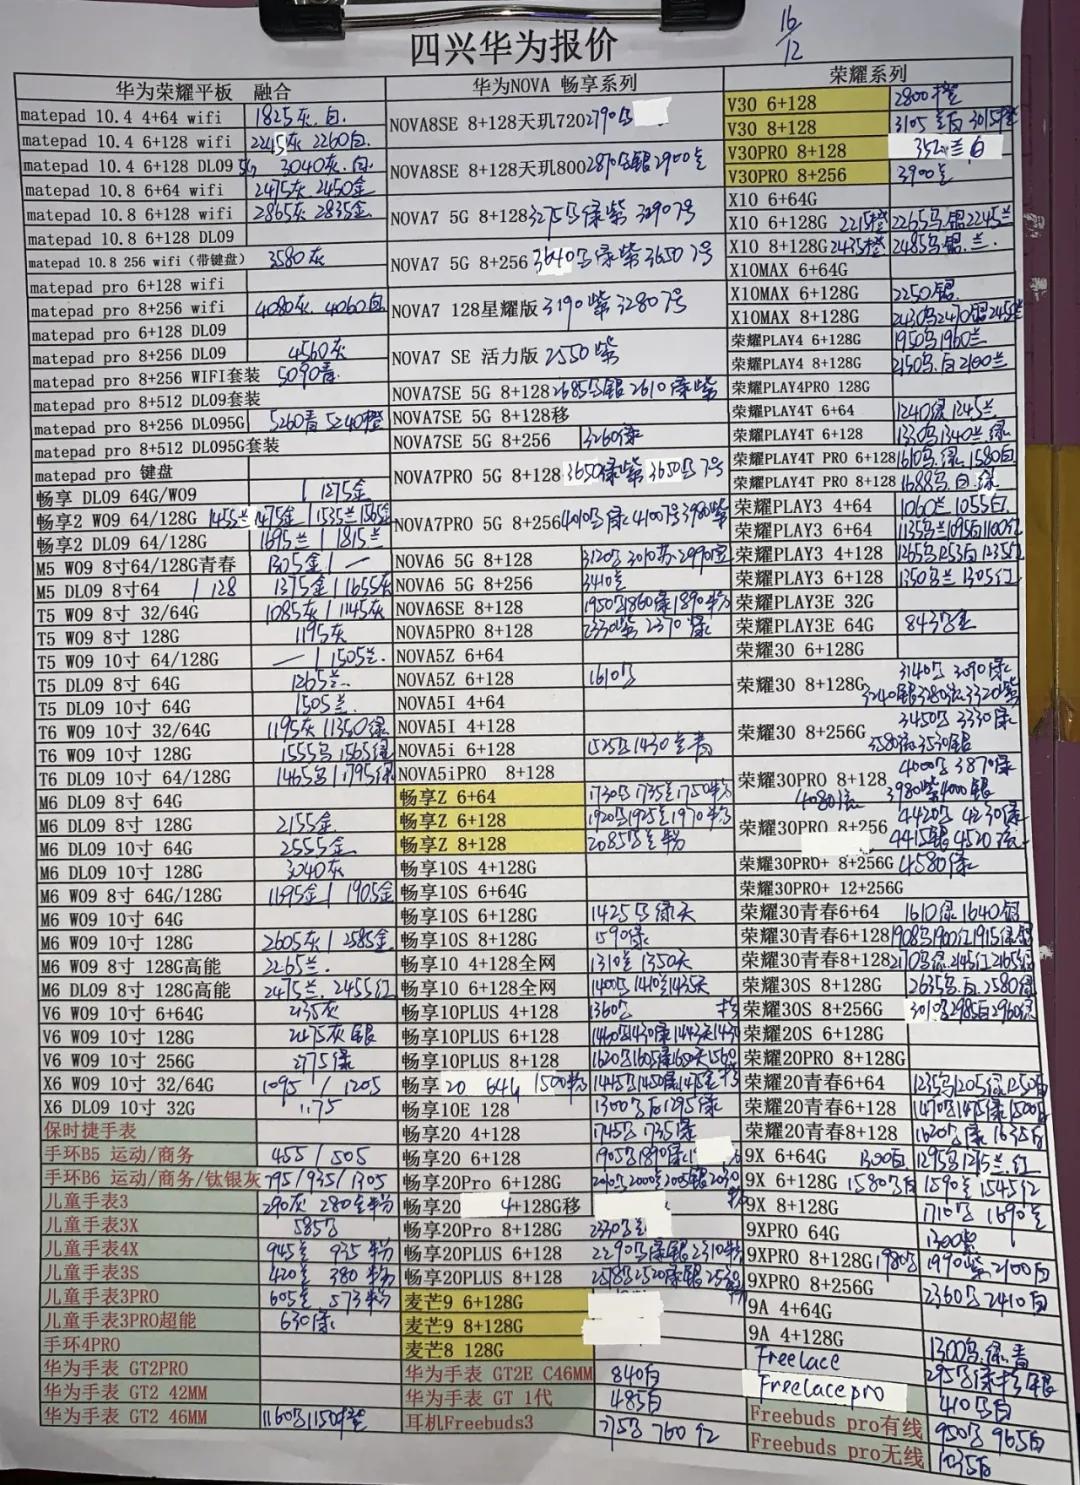 四兴华为报价
16/12
华为荣耀平板 融合
matepad 10.4 4+64 wifi 1825灰.白.
matepad 10.4 6+128 wifi 2245灰 2260白.
matepad 10.4 6+128 DL09 5G 3040灰.白.
matepad 10.8 6+64 wifi 2475灰.2450金
matepad 10.8 6+128 wifi 2865灰 2835金.
matepad 10.8 6+128 DL09
matepad 10.8 256 wifi(带键盘) 3580灰
matepad pro 6+128 wifi
matepad pro 8+256 wifi 4080灰. 4060白.
matepad pro 6+128 DL09
matepad pro 8+256 DL09 4560灰
matepad pro 8+256 WIFI套装 5090青.
matepad pro 8+512 DL09套装
matepad pro 8+256 DL095G 5260青 5240橙
matepad pro 8+512 DL095G套装
matepad pro 键盘
畅享 DL09 64G/W09 / 1275金
畅享2 W09 64/128G 1455兰 1475金 / 1535兰 1565金
畅享2 DL09 64/128G 1695兰 / 1815兰
M5 W09 8寸64/128G青春 1305金 / —
M5 DL09 8寸64 / 128 1375金 / 1655灰
T5 W09 8寸 32/64G 1085灰 / 1145灰
T5 W09 8寸 128G 1195灰
T5 W09 10寸 64/128G — / 1505兰.
T5 DL09 8寸 64G 1265兰.
T5 DL09 10寸 64G 1505兰.
T6 W09 10寸 32/64G 1195灰 / 1350绿
T6 W09 10寸 128G 1555乌 1565绿
T6 DL09 10寸 64/128G 1465乌 / 1795绿
M6 DL09 8寸 64G
M6 DL09 8寸 128G 2155金.
M6 DL09 10寸 64G 2555金.
M6 DL09 10寸 128G 3040灰
M6 W09 8寸 64G/128G 1695金 / 1905金
M6 W09 10寸 64G
M6 W09 10寸 128G 2605灰 / 2585金.
M6 W09 8寸 128G高能 2265兰.
M6 DL09 8寸 128G高能 2475兰. 2455红
V6 W09 10寸 6+64G
V6 W09 10寸 128G 2475灰 银
V6 W09 10寸 256G 2775绿
X6 W09 10寸 32/64G 1095 / 1205
X6 DL09 10寸 32G 1175
保时捷手表
手环B5 运动/商务 455 / 505
手环B6 运动/商务/钛银灰 795/935/1305
儿童手表3 290灰 280金粉
儿童手表3X 585
儿童手表4X 945兰 935粉
儿童手表3S 420兰 380粉
儿童手表3PRO 605兰 573粉
儿童手表3PRO超能 630绿
手环4PRO
华为手表 GT2PRO
华为手表 GT2 42MM
华为手表 GT2 46MM 1160乌 1150橙
华为NOVA 畅享系列
NOVA8SE 8+128天玑720 2790乌
NOVA8SE 8+128天玑800 2870乌银 2900兰
NOVA7 5G 8+128 3275乌绿紫 3290 7号
NOVA7 5G 8+256 3640乌绿紫 3650 7号
NOVA7 128星耀版 3190紫 3280 7号
NOVA7 SE 活力版 2550紫
NOVA7SE 5G 8+128 2685乌银 2610绿紫
NOVA7SE 5G 8+128移
NOVA7SE 5G 8+256 3260绿
NOVA7PRO 5G 8+128 3650绿紫 3650乌 7号
NOVA7PRO 5G 8+256 4010乌绿 4100 7号 3980紫
NOVA6 5G 8+128 3120乌 3010苏 2990兰
NOVA6 5G 8+256 3410兰
NOVA6SE 8+128 1950乌 1860绿 1890粉
NOVA5PRO 8+128 2330紫 2370绿
NOVA5Z 6+64
NOVA5Z 6+128 1610乌
NOVA5I 4+64
NOVA5I 4+128
NOVA5i 6+128 1525乌 1430兰青
NOVA5iPRO 8+128
畅享Z 6+64 1730乌 1735兰 1750粉
畅享Z 6+128 1920乌 1925兰 1970粉
畅享Z 8+128 2085乌兰粉
畅享10S 4+128G
畅享10S 6+64G
畅享10S 6+128G 1425乌绿天
畅享10S 8+128G 1590绿.
畅享10 4+128全网 1310兰 1350天
畅享10 6+128全网 1400乌 1410兰 1435天
畅享10PLUS 4+128 1360乌
畅享10PLUS 6+128
畅享10PLUS 8+128 1620乌 1605绿
畅享20 64G 1500粉 1445乌 1450绿 1475兰
畅享10E 128 1300乌白 1295绿
畅享20 4+128 1745乌 1735绿
畅享20 6+128 1905乌 1890绿
畅享20Pro 6+128G
畅享20 4+128G移
畅享20Pro 8+128G 2330乌兰
畅享20PLUS 6+128 2290乌绿银 2310粉
畅享20PLUS 8+128
麦芒9 6+128G
麦芒9 8+128G
麦芒8 128G
华为手表 GT2E C46MM 840白
华为手表 GT 1代 485白
耳机Freebuds3 775乌 760红
荣耀系列
V30 6+128 2800橙
V30 8+128 3105兰白 3015橙
V30PRO 8+128 3520兰白
V30PRO 8+256 3900兰
X10 6+64G
X10 6+128G 2215橙 2265乌.银 2245兰
X10 8+128G 2435橙 2485乌.银.兰.
X10MAX 6+64G
X10MAX 6+128G 2250银.
X10MAX 8+128G 2430乌 2470银 2450兰
荣耀PLAY4 6+128G 1950乌 1960兰
荣耀PLAY4 8+128G 2150乌.白 2100兰
荣耀PLAY4PRO 128G
荣耀PLAY4T 6+64 1240绿 1245兰
荣耀PLAY4T 6+128 1330乌 1340兰.绿
荣耀PLAY4T PRO 6+128 1610乌.绿 1580白
荣耀PLAY4T PRO 8+128 1688乌.白.绿
荣耀PLAY3 4+64 1060兰 1055白.
荣耀PLAY3 6+64 1135乌兰 1095白 1100红
荣耀PLAY3 4+128 1265乌 1253白 1235红
荣耀PLAY3 6+128 1350乌兰 1305红
荣耀PLAY3E 32G
荣耀PLAY3E 64G 843乌兰
荣耀30 6+128G
荣耀30 8+128G 3140乌 3090绿 3240银 3320紫
荣耀30 8+256G 3450乌 3330绿 3530银
荣耀30PRO 8+128 4000乌 3870绿 3980紫 4000银
荣耀30PRO 8+256 4420乌 4230绿 4415银
荣耀30PRO+ 8+256G 4580绿
荣耀30PRO+ 12+256G
荣耀30青春6+64 1610绿 1640银
荣耀30青春6+128 1908乌 1900红 1915绿银
荣耀30青春8+128 2170乌绿 2145红 2165银
荣耀30S 8+128G 2635乌.白 2580绿
荣耀30S 8+256G 3010乌 2985白 2960绿
荣耀20S 6+128G
荣耀20PRO 8+128G
荣耀20青春6+64 1235乌 1205绿 1250白
荣耀20青春6+128 1470乌 1475绿 1500白
荣耀20青春8+128 1620乌.绿 1635白
9X 6+64G 1300白 1295乌 1275兰.红
9X 6+128G 1580乌白 1590兰 1545红
9X 8+128G 1710乌 1690兰
9XPRO 64G 1300紫
9XPRO 8+128G 1980乌 1990紫 2100白
9XPRO 8+256G 2360乌 2410白
9A 4+64G
9A 4+128G 1300乌.绿.青
Freelace
Freelacepro 410乌白
Freebuds pro有线 950乌 965白
Freebuds pro无线 1035白